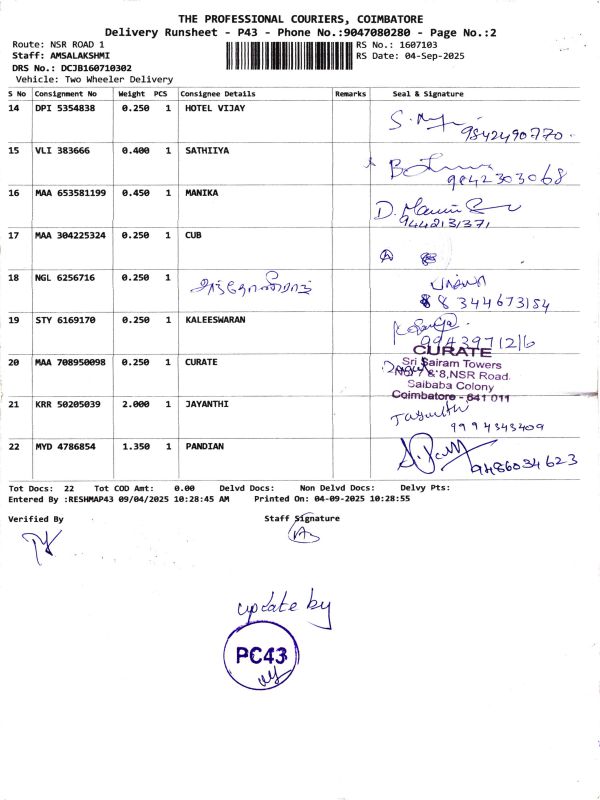 THE PROFESSIONAL COURIERS, COIMBATORE
Delivery Runsheet - P43 - Phone No.:9047080280 - Page No.:2
Route: NSR ROAD 1
RS No.: 1607103
Staff: AMSALAKSHMI
RS Date: 04-Sep-2025
DRS No.: DCJB160710302
Vehicle: Two Wheeler Delivery
S No Consignment No Weight PCS Consignee Details Remarks Seal & Signature
14 DPI 5354838 0.250 1 HOTEL VIJAY
9842490770
15 VLI 383666 0.400 1 SATHIIYA
9842303068
16 MAA 653581199 0.450 1 MANIKA
9442131371
17 MAA 304225324 0.250 1 CUB
18 NGL 6256716 0.250 1
8344673184
19 STY 6169170 0.250 1 KALEESWARAN
9943971216
20 MAA 708950098 0.250 1 CURATE
CURATE
Sri Sairam Towers
No 7 & 8,NSR Road.
Saibaba Colony
Coimbatore - 641 011
21 KRR 50205039 2.000 1 JAYANTHI
Jayanthi
9994343409
22 MYD 4786854 1.350 1 PANDIAN
9486034623
Tot Docs: 22 Tot COD Amt: 0.00 Delvd Docs: Non Delvd Docs: Delvy Pts:
Entered By :RESHMAP43 09/04/2025 10:28:45 AM Printed On: 04-09-2025 10:28:55
Verified By
Staff Signature
update by
PC43